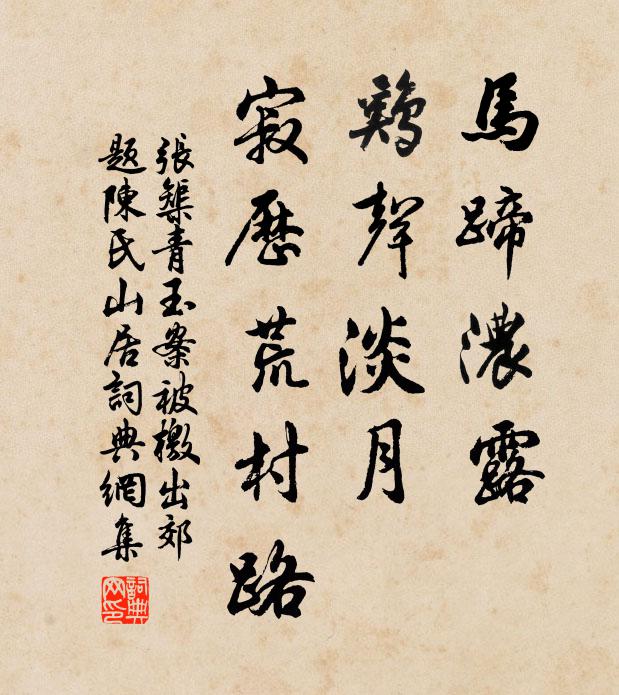 馬蹄濃露
鷄聲淡月
寂歷荒村路
張榘青玉案被檄出郊
題陳氏山居詞典網集
詞典網印